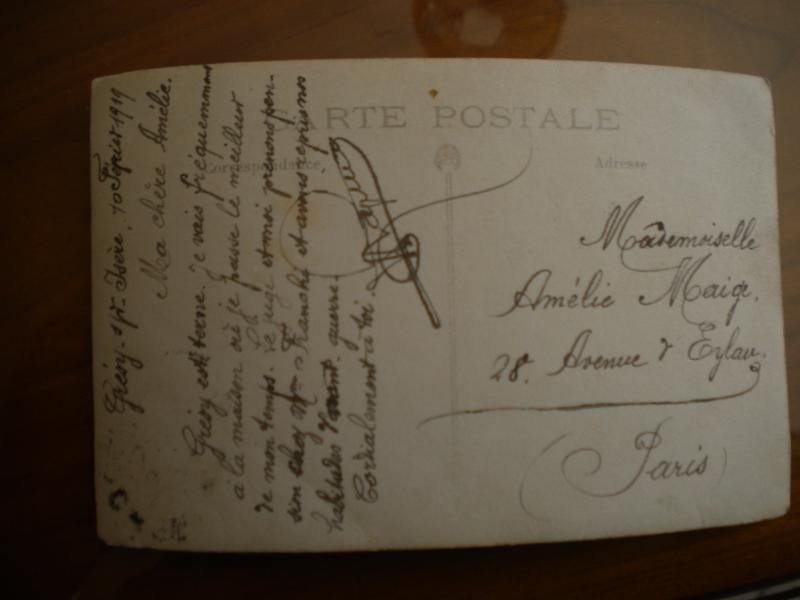 CARTE POSTALE
Correspondance
Adresse
Grésy-s/r-Isère, 10 Février 1919
Ma chère Amélie.
Grésy est terne. Je vais fréquemment
à la maison où je passe le meilleur
de mon temps. Le juge et moi prenons pen-
sion chez Mme Franchi et avons repris nos
habitudes d'avant-guerre.
Cordialement à toi.
Mademoiselle
Amélie Maige.
28. Avenue d'Eylau.
(Paris)